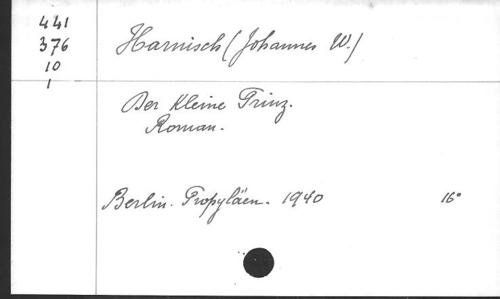 441
376
10
1
Harnisch (Johannes W.)
Der kleine Prinz.
Roman.
Berlin. Propyläen. 1940 16°